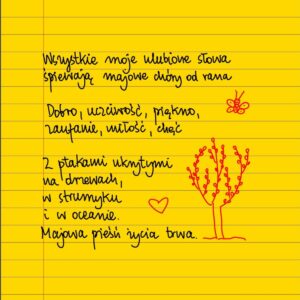 Wszystkie moje ulubione słowa
śpiewają majowe chóry od rana
Dobro, uczciwość, piękno,
zaufanie, miłość, chęć
Z ptakami ukrytymi
na drzewach,
w strumyku
i w oceanie.
Majowa pieśń życia trwa.